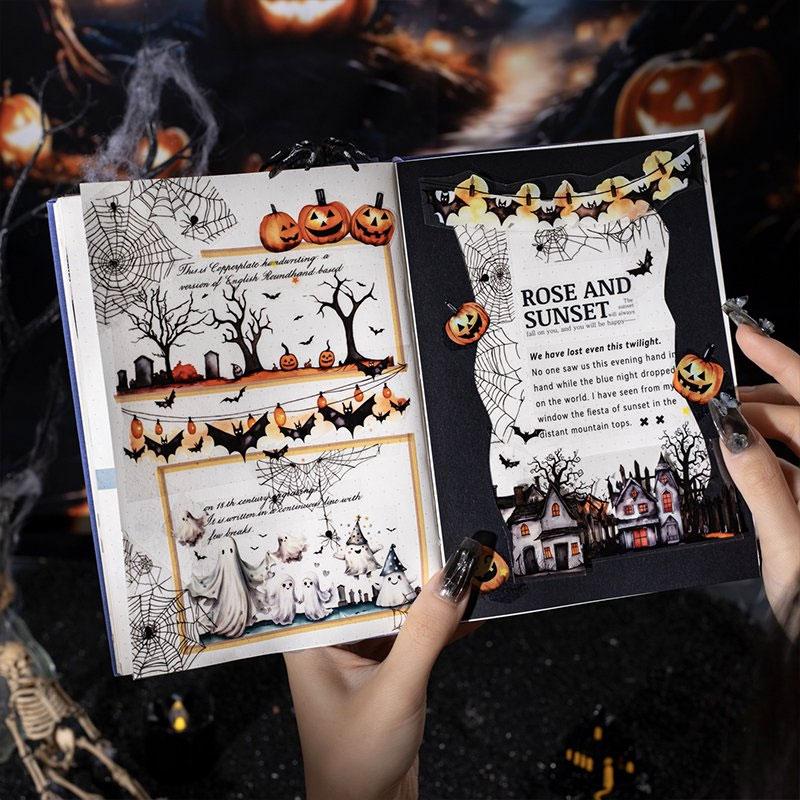 This is Copperplate handwriting: a
version of English Roundhand based
on 18th century engraving
It is written in a continuous line with
few breaks.
ROSE AND
SUNSET
The
sunset
will always
fall on you, and you will be happy
We have lost even this twilight.
No one saw us this evening hand in
hand while the blue night dropped
on the world. I have seen from my
window the fiesta of sunset in the
distant mountain tops.